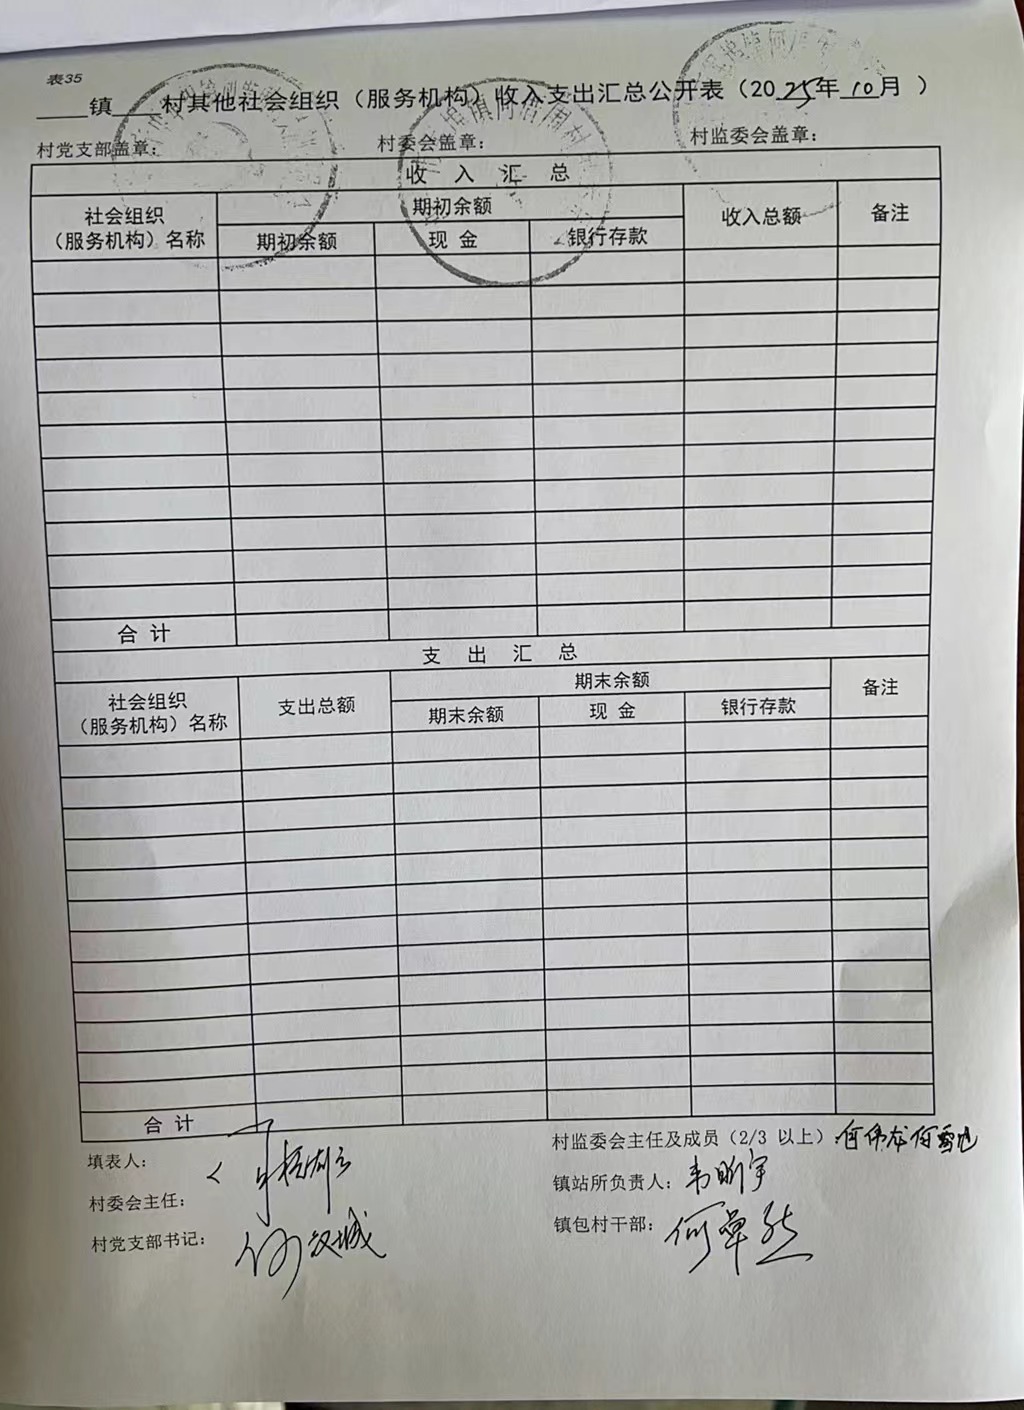 表35
____镇____村其他社会组织（服务机构）收入支出汇总公开表（2025年10月 ）
村党支部盖章： 村委会盖章： 村监委会盖章：
收 入 汇 总
社会组织（服务机构）名称 期初余额 收入总额 备注
期初余额 现 金 银行存款
合 计
支 出 汇 总
社会组织（服务机构）名称 支出总额 期末余额 备注
期末余额 现 金 银行存款
合 计
填表人： 村监委会主任及成员（2/3 以上）：何伟龙
村委会主任： 镇站所负责人：韦昕宇
村党支部书记：何汉城 镇包村干部：何卓然